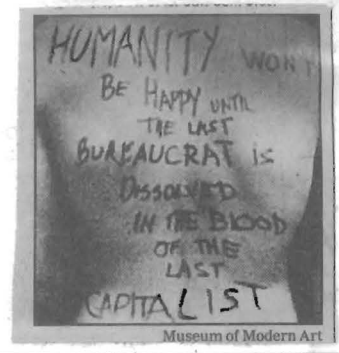 HUMANITY WON'T
BE HAPPY UNTIL
THE LAST
BUREAUCRAT is
DISSOLVED
IN THE BLOOD
OF THE
LAST
CAPITALIST
Museum of Modern Art